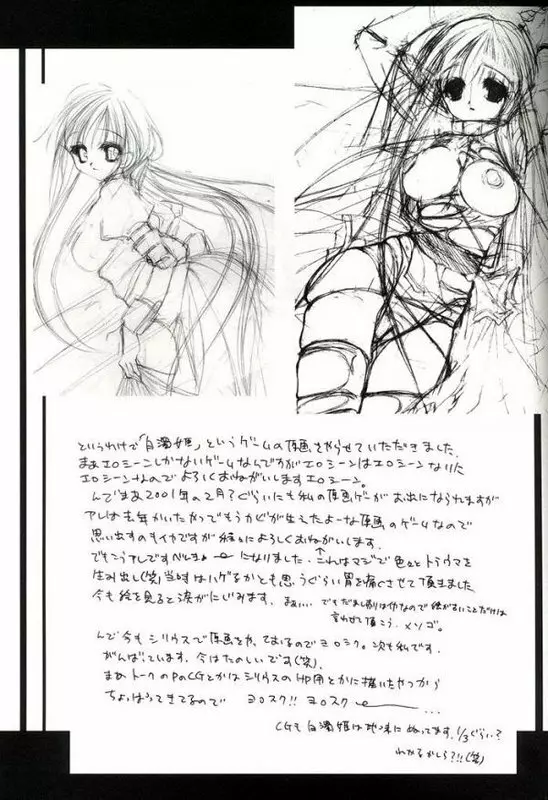 というわけで「白濁姫」というゲームの原画をやらせていただきました。
まぁエロシーンしかないゲームなんですがエロシーンはエロシーンなりに
エロシーンなのでよろしくおねがいしますエロシーン。
んでまぁ2001年の2月?ぐらいにも私の原画ゲーがお出になられますが
アレは去年かいたやつでもうカビが生えたよーな原画のゲームなので
思い出すのもイヤですが よろしくおねがいします。
でもこうアレですべしま になりました。↑これはマジで色々とトラウマを
生み出し(笑)当時はハゲるかとも思うぐらい胃を痛くさせて頂きました
今も絵を見ると涙がにじみます。まぁ… でも は なので ことだけは
言わせて頂こう。メソゴ。
んで今もシリウスで原画をやっておるのでヨロシク。次も私です。
がんばっています。今はたのしいです(笑)。
まぁトークのPのCGとかはシリウスのHP用とかに描いたやつから
ちょっぱってきてるので ヨロスク!! ヨロスク
CGも白濁姫は地味にぬってます。1/3ぐらい?
わかるかしら?!!(笑)